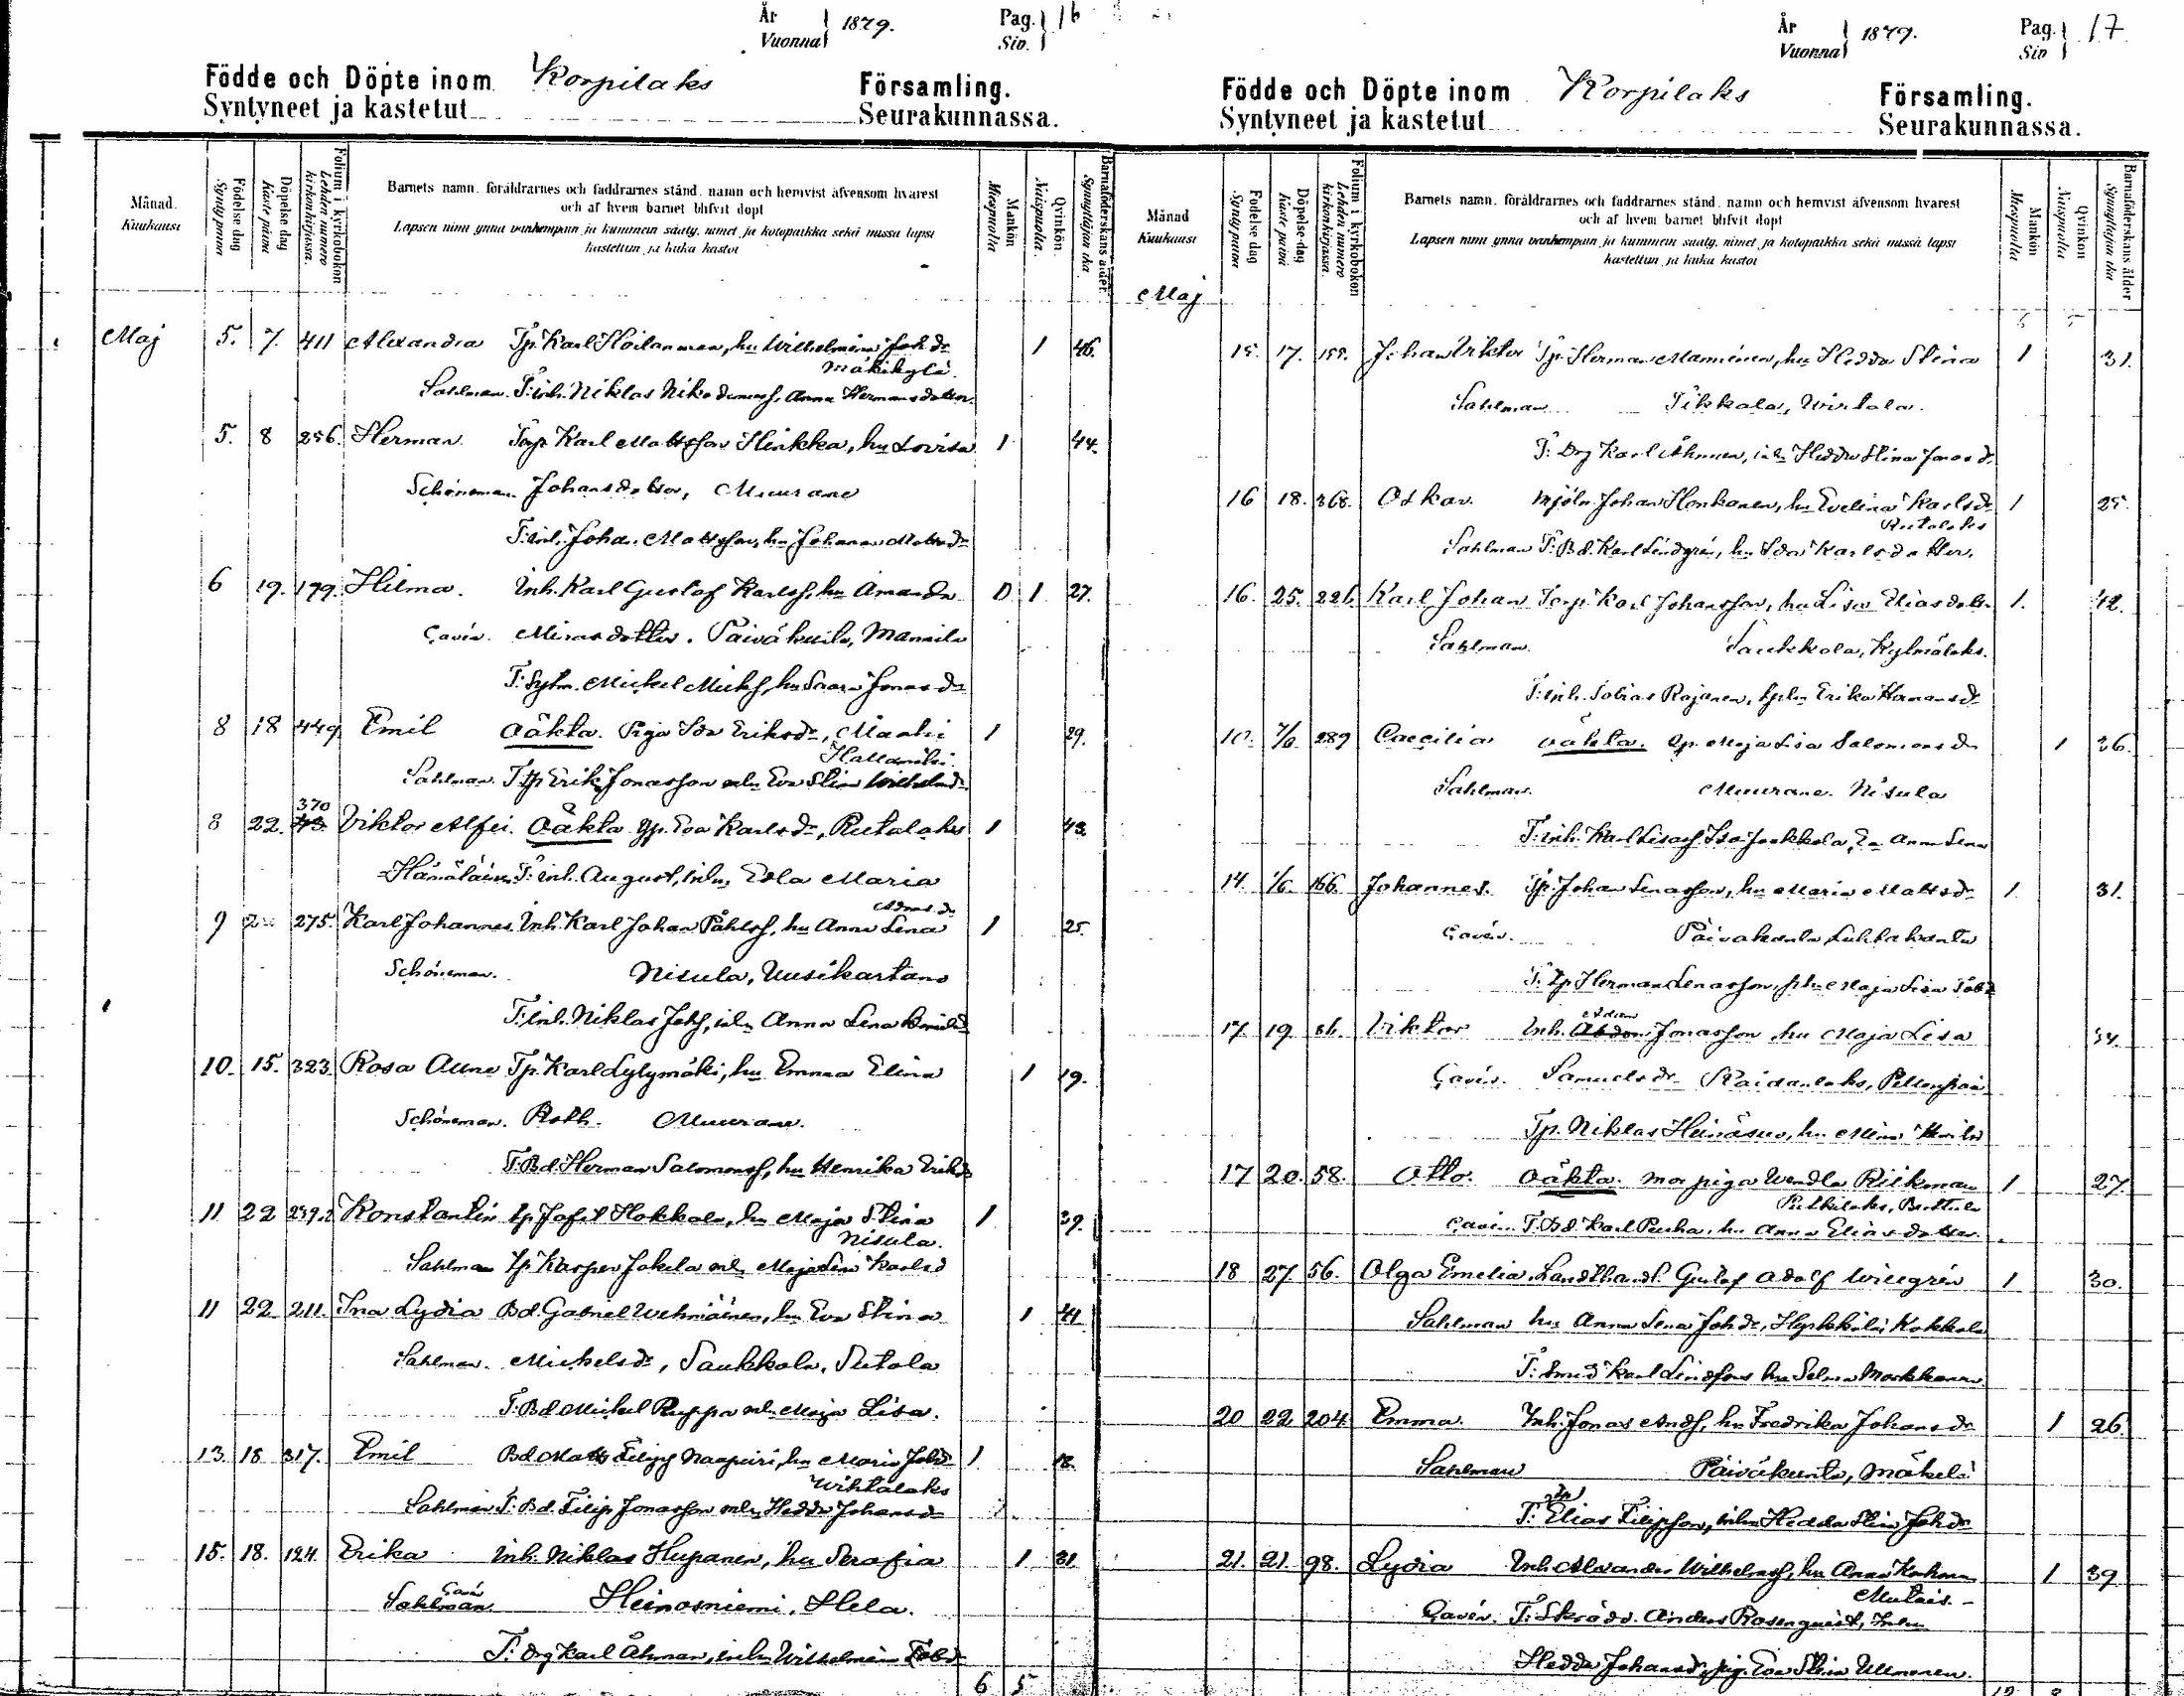 År Vuonna 1879. Pag. Siv. 16
Födde och Döpte inom Korpilaks Församling.
Syntyneet ja kastetut Seurakunnassa.
Månad. Kuukausi
Födelse dag Synty päivä
Döpelse dag Kaste päivä
Folium i kyrkobokon Lehden numero kirkonkirjassa.
Barnets namn. föräldrarnes och faddrarnes stånd. namn och hemvist äfvensom hvarest
och af hvem barnet blifvit döpt
Lapsen nimi ynnä vanhempain ja kummein sääty, nimet ja kotopaikka sekä missä lapsi
kastettun ja kuka kastoi
Mankön Miespuolia
Qvinkön Naispuolia.
Barnaföderskans ålder. Synnyttäjän ikä
Maj 5. 7. 411 Alexandra Tp. Karl Hoilanman, hu Wilhelmina Joh.dr 1 46.
Mäkikylä.
Sahlman. T: inh. Niklas Nikodemuss, Anna Hermansdotter.
5. 8 256. Herman. Torp. Karl Mattsson Hinkka, hu Lovisa 1 44.
Schöneman. Johansdotter, Muurame
T: inh. Johan Mattsson, hu Johanna Mattsdr
6 19. 179. Hilma. Inh. Karl Gustaf Karlss, hu Amanda 0 1 27.
Cavén. Minasdotter. Päiväkunta, Mannila
T: Sytn. Mickel Micks, hu Saara Jonasdr
8 18 449 Emil Oäkta. Piga Ida Eriksdr, Maahi 1 29.
Sahlman. T: tp Erik Jonasson inhn Eva Stina Wilhelmd
370
8 22. Viktor Alfei. Oäkta Eva Karlsdr, Rutalaks 1 43.
Hämäläinen T: inh. August, inhn Edla Maria
9 275. Karl Johannes. Inh. Karl Johan Påhlss, hu Anna Lena 1 25.
Schöneman. Nisula, Uusikartano
T: inh. Niklas Johs, inhn Anna Lena
10. 15. 323. Rosa Aune Tp. Karl Lylymäki, hu Emma Elina 1 19.
Schöneman. Roth. Muurame.
T: Bd. Herman Salomonss, hu Henrika Eriksd
11 22 Konstantin tp Jafet Hokkala, hu Maja Stina 1 39.
Nisula.
Sahlman tp Kasper Jokela inhn Maja Lisa Karlsd
11 22 211. Ina Lydia Bd. Gabriel Wehmäinen, hu Eva Stina 1 41
Sahlman. Mickelsdr, Saukkola, Sutola
T: Bd Mickel Ruppa inhn Maja Lisa.
13. 18 317. Emil Bd. Matts Filipss Naapuri, hu Maria Johd 1 18.
Wihtalaks
Sahlman T: Bd. Filip Jonasson inhn Hedda Johansd
15. 18. 124. Erika Inh. Niklas Hupanen, hu Serafia 1 31.
Cavén
Sahlman. Heinosniemi. Hela.
T: Drg Karl Åhman, inhn Wilhelmina Tobd
6 5
År Vuonna 1879. Pag. Siv 17
Födde och Döpte inom Korpilaks Församling.
Syntyneet ja kastetut Seurakunnassa.
Månad Kuukausi
Födelse dag Synty päivä
Döpelse-dag Kaste päivä
Folium i kyrkobokon Lehden numero kirkonkirjassa.
Barnets namn, föräldrarnes och faddrarnes stånd. namn och hemvist äfvensom hvarest
och af hvem barnet blifvit döpt
Lapsen nimi ynnä vanhempain ja kummein sääty, nimet ja kotopaikka sekä missä lapsi
kastettun ja kuka kastoi
Mankön Miespuolia
Qvinkön Naispuolia
Barnaföderskans ålder Synnyttäjän ikä
Maj
15. 17. 155. Johan Viktor Tp. Herman Manninen, hu Hedda Stina 1 31.
Sahlman Tikkala, Wirtala.
T: Drg Karl Åhman, inhn Hedda Stina Jonasdr
16 18. 368. Oskar. Mjöln. Johan Honkanen, hu Evelina Karlsdr 1 25.
Rutalaks
Sahlman T: Bd. Karl Lindgrén, hu Ida Karlsdotter.
16. 25. 226. Karl Johan Torp. Karl Johansson, hu Lisa Eliasdotr 1. 42.
Sahlman. Saukkola, Kylmälaks.
T: inh. Tobias Rajanen, Erika Hermansdr
10. 7/6. 289 Caecilia oäkta. Maja Lisa Salomonsdr 1 36.
Sahlman. Muurame. Nisula
T: inh. Karl Lisass Iso-Jookkola, Anna Lena
14. 1/6. 166. Johannes. Tp. Johan Lenasson, hu Maria Mattsdr 1. 31.
Cavén. Päiväkunta Luhtakanta
T: tp Herman Lenasson, Maja Lisa Tobd
17. 19. 86. Viktor Inh. Jonasson, hu Maja Lisa 34.
Cavén. Samuelsdr Raidanlaks, Pellonpää
Tp. Niklas Heinäsuo, hu Mina
17 20. 58. Otto. Oäkta. Mor piga Wendla Riikman 1 27.
Putkilaks,
Cavén T: Bd. Karl Puha, hu Anna Eliasdotter.
18 27 56. Olga Emelia. Landthandl. Gustaf Adolf Willgrén 1 30.
Sahlman hu Anna Lena Johdr, Kokkola
T: Smed Karl Lindfors hu Selma Markkanen
20 22 204. Emma. Inh. Jonas Ands, hu Fredrika Johansdr 1 26
Sahlman Päiväkunta, Mäkelä
T: Elias Filipson, inhn Hedda Stina Johdr
21. 21. 98. Lydia Inh Alexander Wilhelmss, hu Anna 1 39
Mutais.
Cavén. T: Skrädd. Anders Rosenqvist, Inhn
Hedda Johansd, pig. Eva Stina Ullmonen.